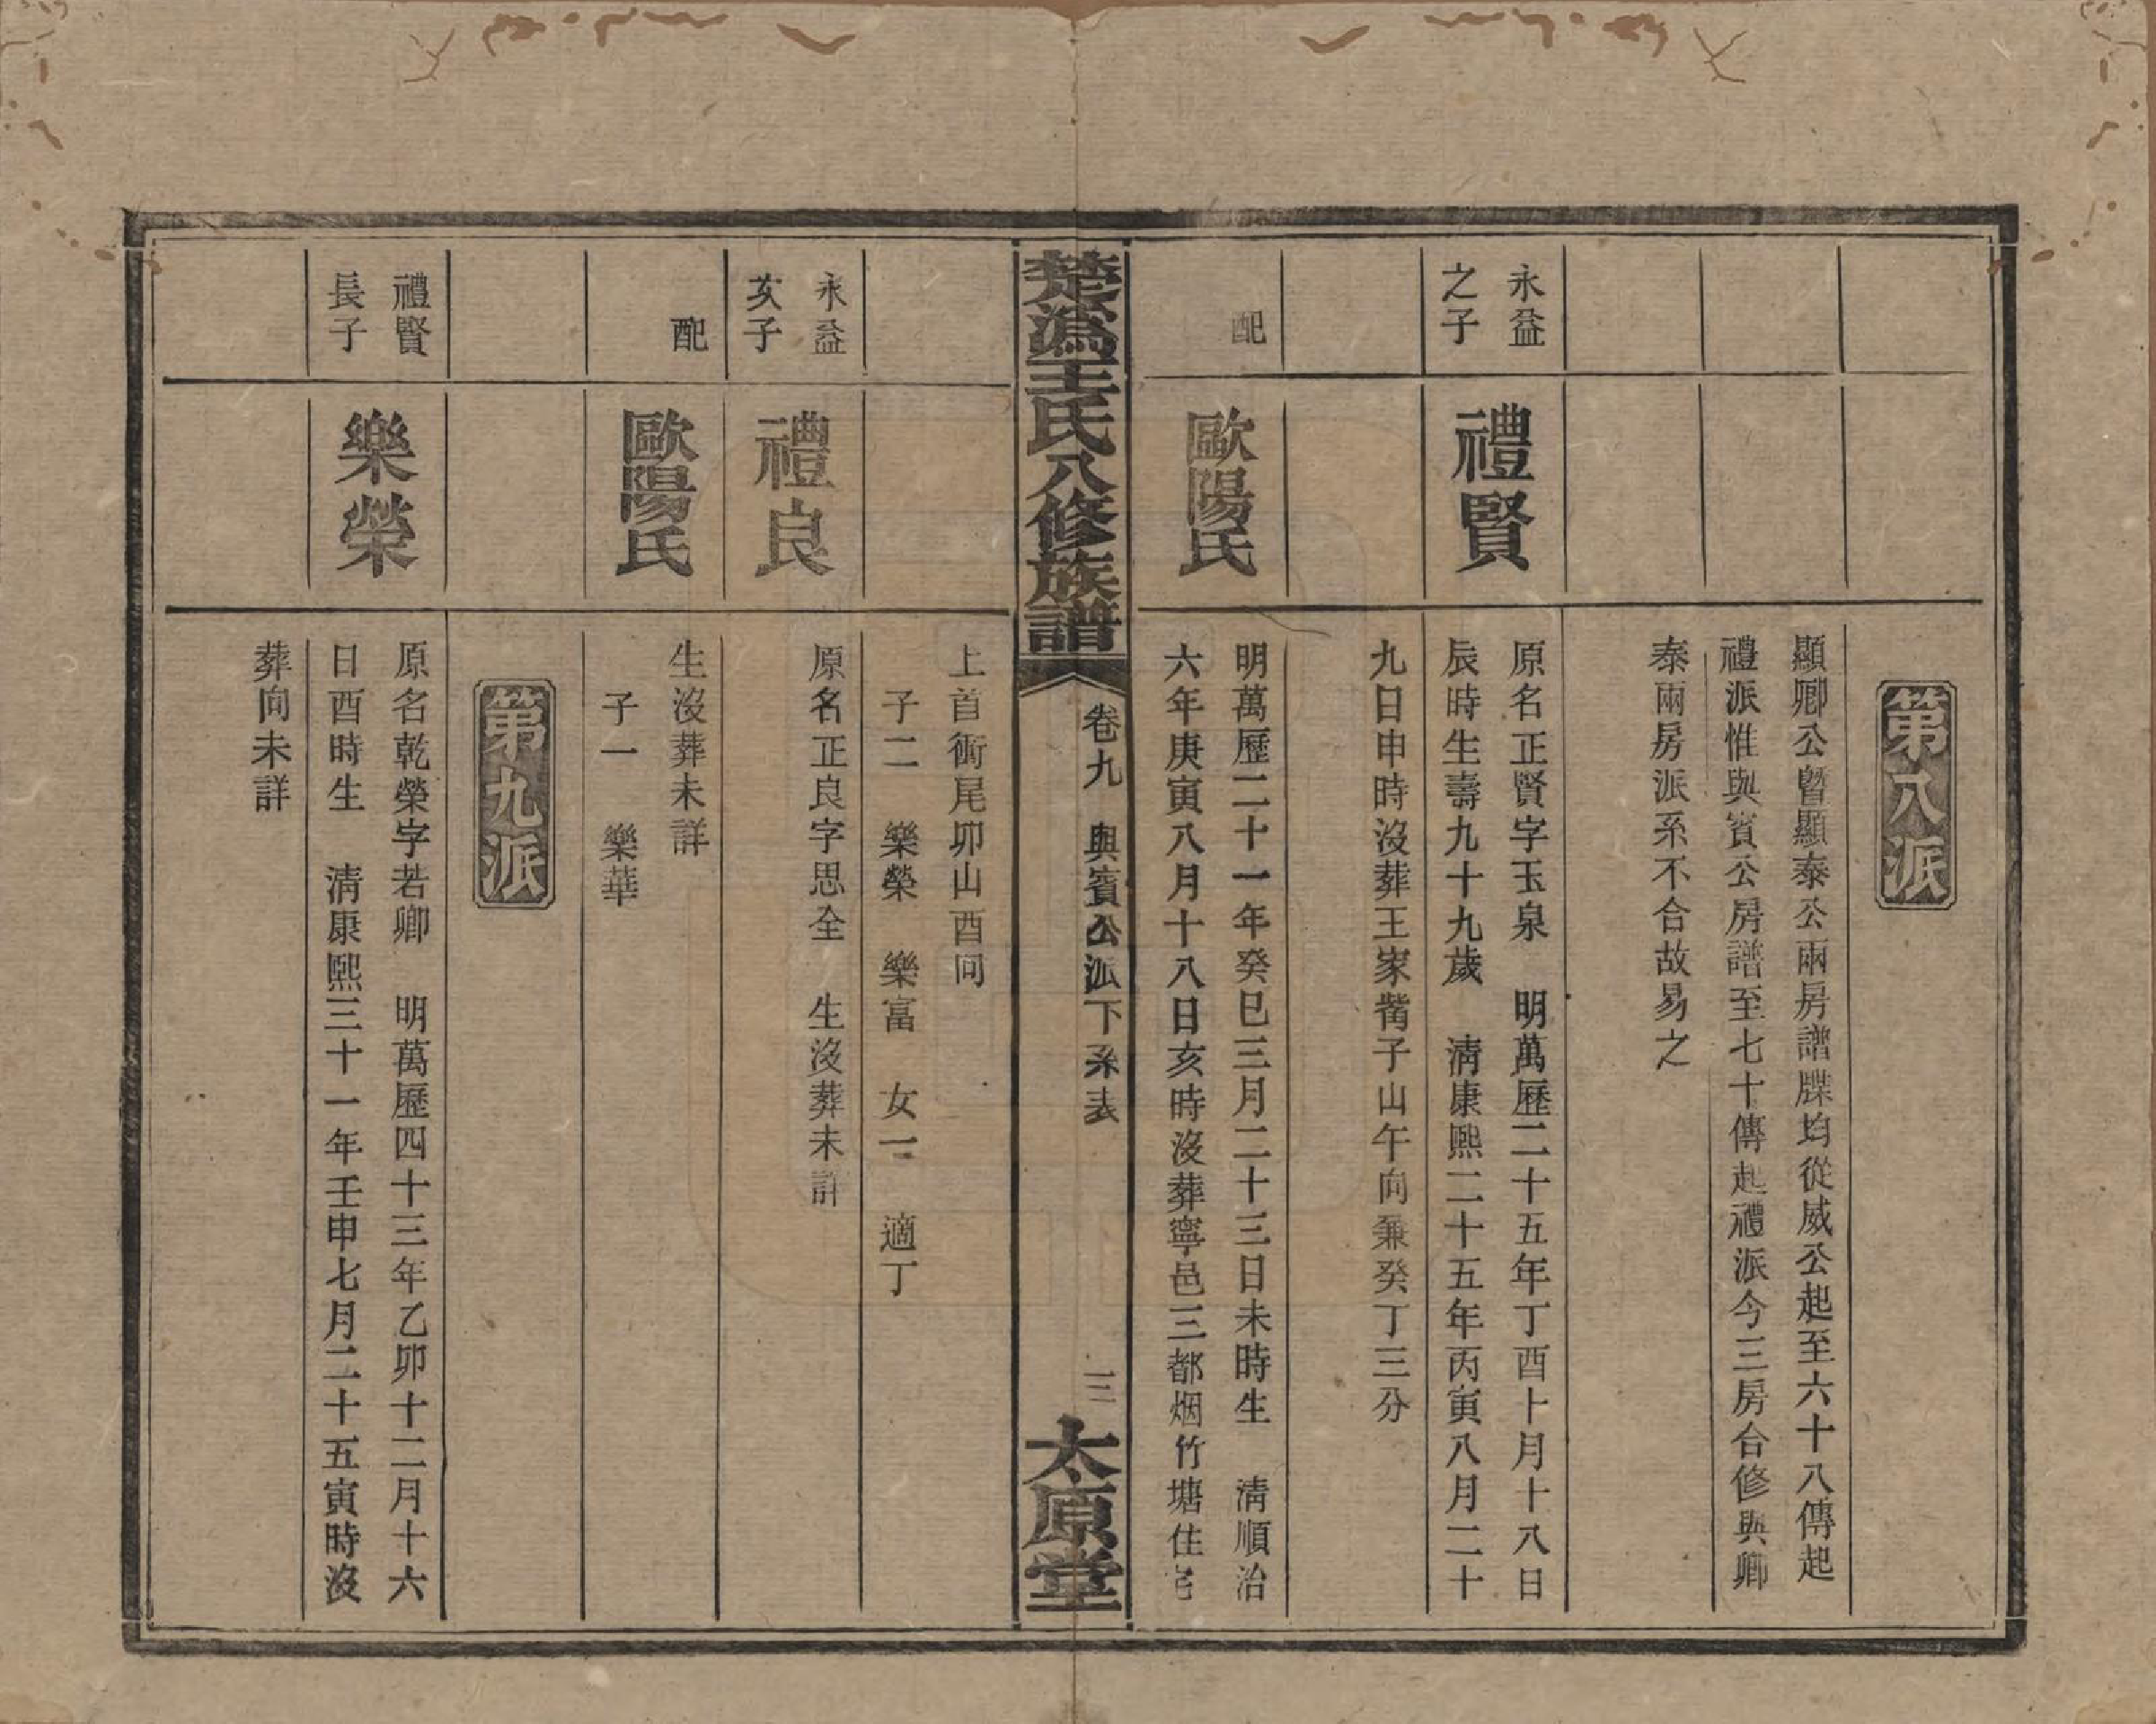 第八派
顯卿公暨顯泰公兩房譜牒均從威公起至六十八傳起
禮派惟與賓公房譜至七十傳起禮派今三房合修與卿
泰兩房派系不合故易之
永益
之子
禮賢
原名正賢字玉泉　明萬歷二十五年丁酉十月十八日
辰時生壽九十九歲　清康熙二十五年丙寅八月二十
九日申時沒葬王家嘴子山午向兼癸丁三分
配
歐陽氏
明萬歷二十一年癸巳三月二十三日未時生　清順治
六年庚寅八月十八日亥時沒葬寧邑三都烟竹塘住宅
楚溈王氏八修族譜
卷九　與賓公派下系表
三
太原堂
上首衝尾卯山酉向
子二　樂榮　樂富　女一　適丁
永益
次子
禮良
原名正良字思全　生沒葬未詳
配
歐陽氏
生沒葬未詳
子一　樂華
第九派
禮賢
長子
樂榮
原名乾榮字若卿　明萬歷四十三年乙卯十二月十六
日酉時生　清康熙三十一年壬申七月二十五寅時沒
葬向未詳